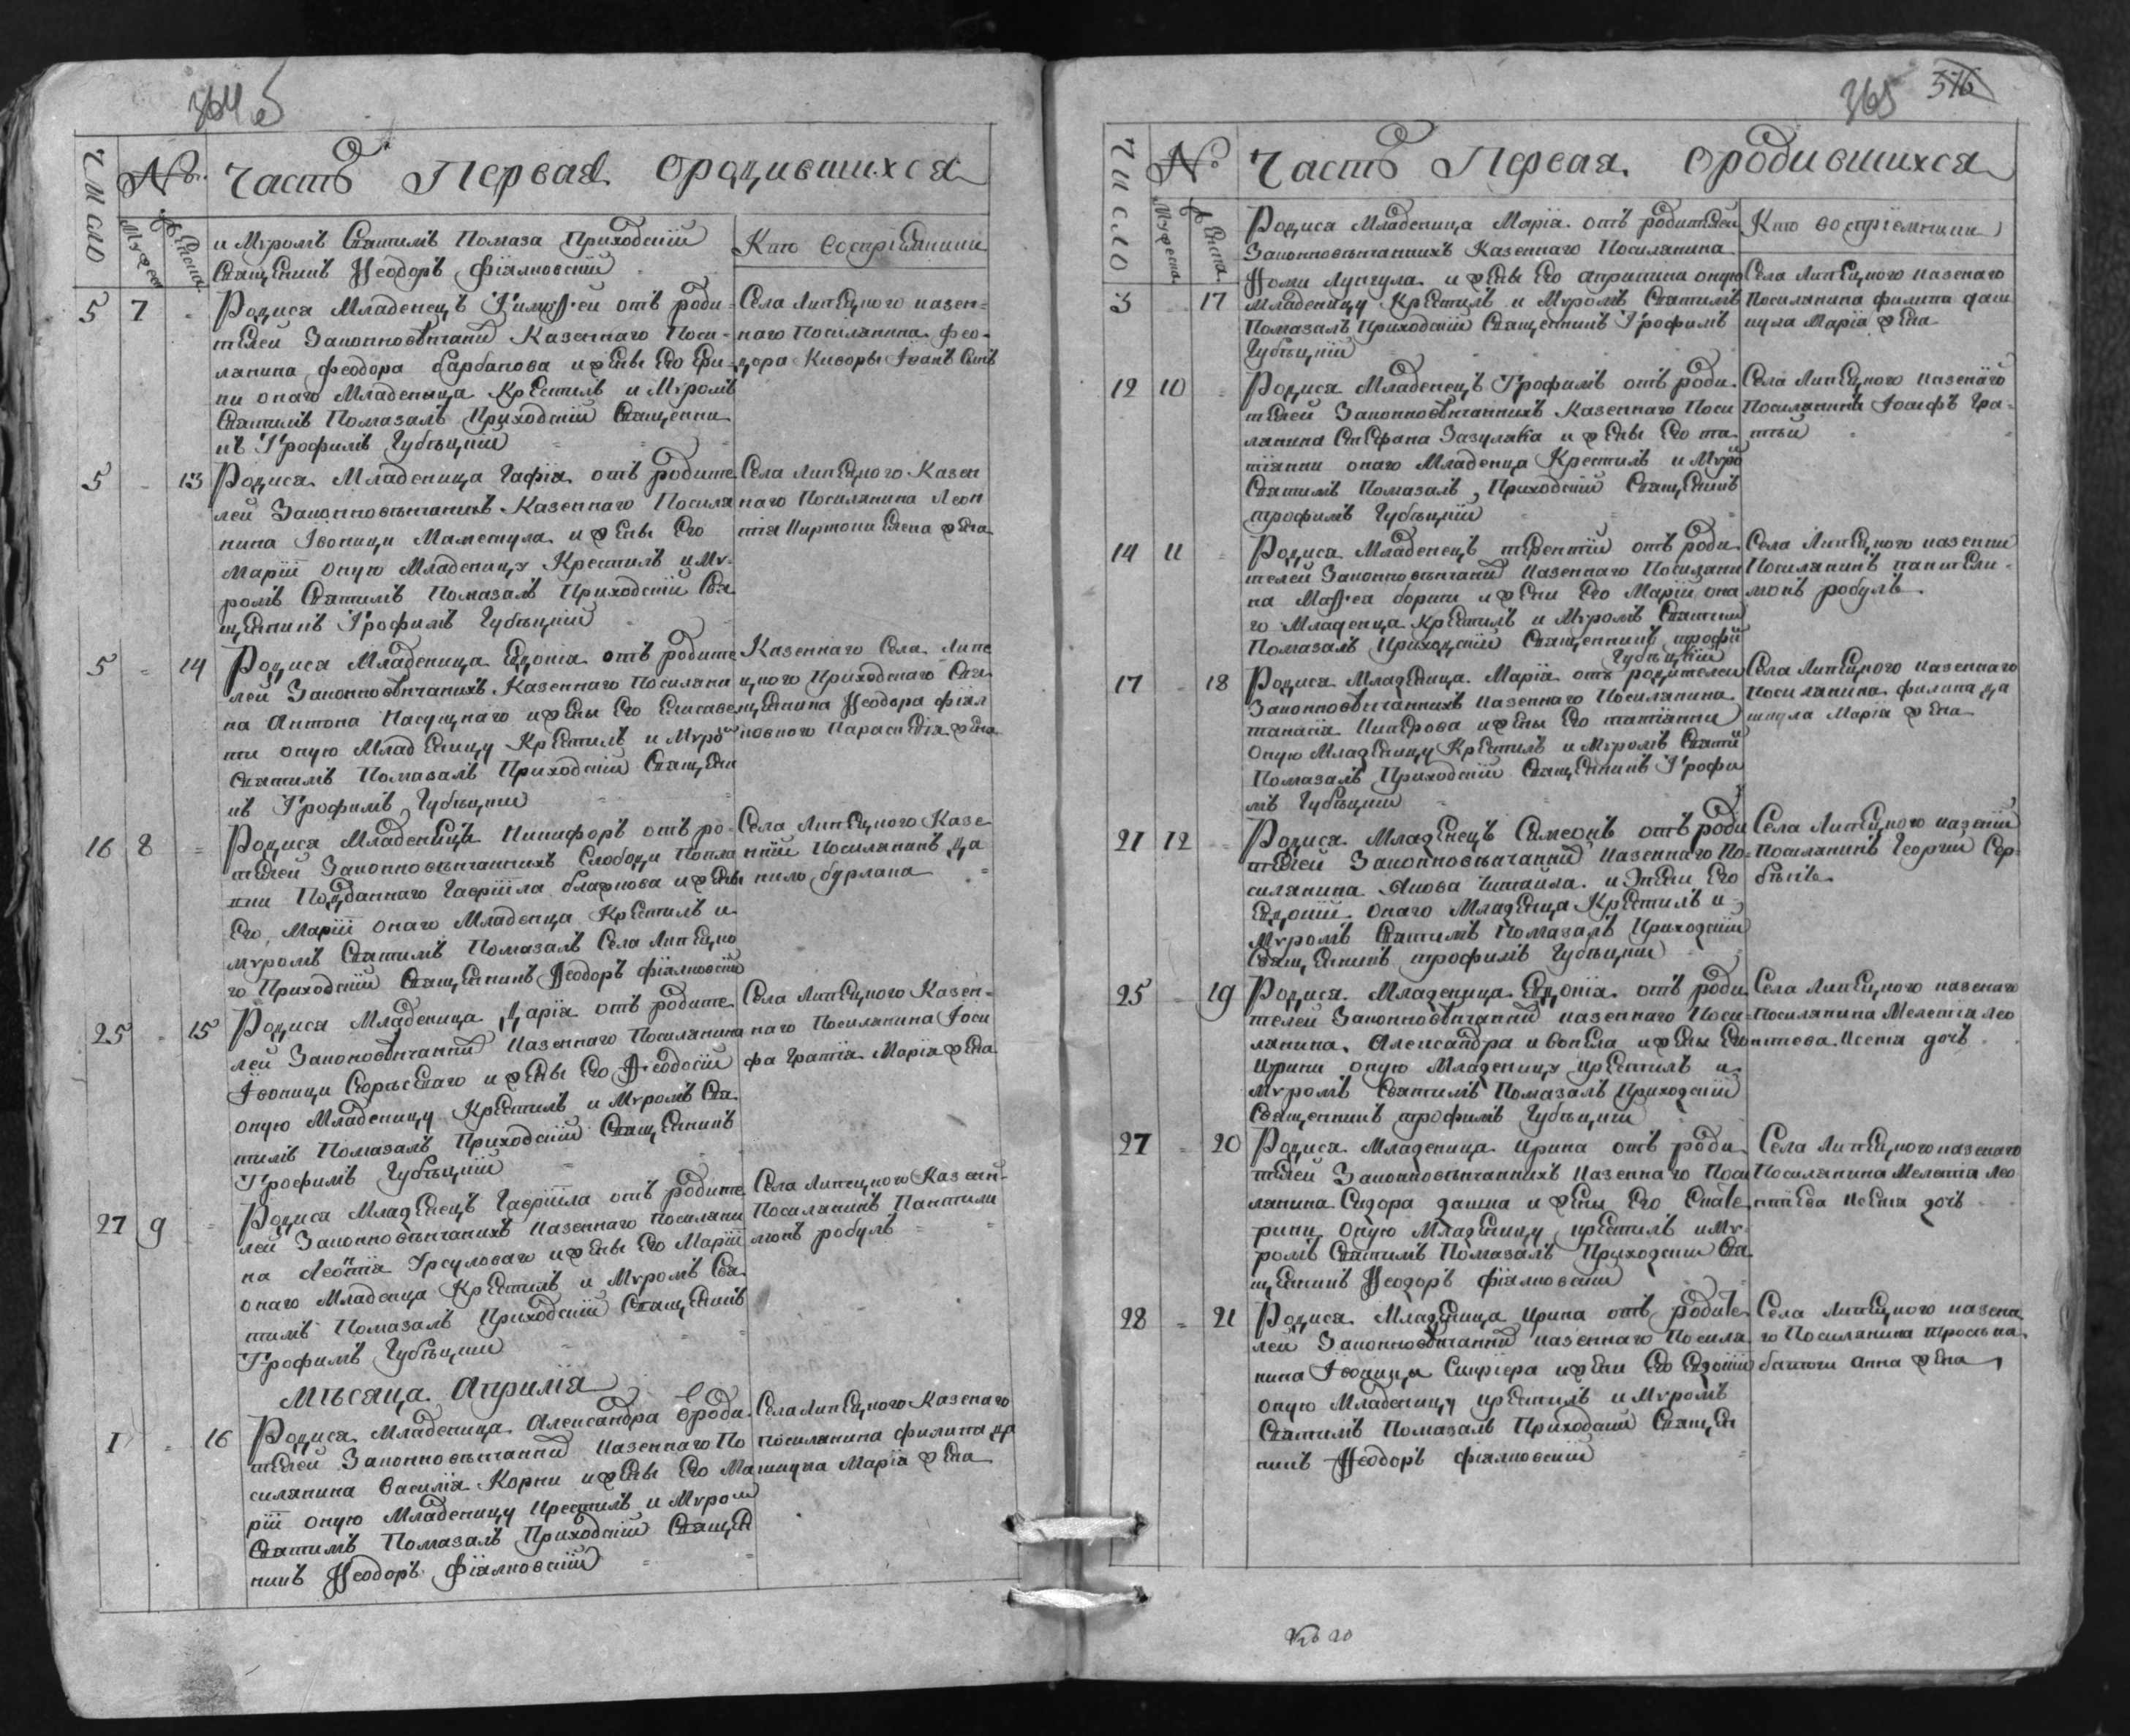 364 б
Число
№
Часть Первая ородившихся
Мужеск
Женска
и Мѵромъ Святимъ Помаза Приходскій
Священикъ Ѳеодоръ Фіялковскій
Кто Воспріемники
5 7 Родися Младенецъ Тимоѳей отъ роди-
телей Законновѣнчаны Казеннаго Посе-
лянина Феодора барбапова и жены Его Ефи-
ми онаго Младенца Крестилъ и Мѵромъ
Святимъ Помазалъ Приходскій Священни
къ Трофимъ Губѣцкій
Села Липецкого казен-
наго Поселянина Фео-
дора Киворы Іванъ Сынъ
5 - 13 Родися Младеница Гафія отъ родите
лей Законновѣнчанихъ Казеннаго Поселя
нина Іваници Маметула и жены Его
Маріи оную Младеницу Крестилъ и Мѵ-
ромъ Святимъ Помазалъ Приходскій Свя
щенникъ Трофимъ Губѣцкій
Села Липецкого Казен
наго Поселянина Леон
тія Елена жена
5 = 14 Родися Младеница Евдокія отъ родите
лей Законновѣнчанихъ Казеннаго Поселяни
на Антона Пасуцнаго и жены Его Елисаве
ти оную Младеницу Крестилъ и Мѵро
Святимъ Помазалъ Приходскій Священ
къ Трофимъ Губѣцкій
Казеннаго Села Липе
цкого Приходскаго Свя
щенника Ѳеодора Фіял
ковского Параскевія жена
16 8 = Родися Младенецъ Никифоръ отъ ро-
телей Законновѣнчанихъ Слободи
Подданнаго Гавріила и жены
Его Маріи онаго Младенца Крестилъ и
мѵромъ Святимъ Помазалъ Села Липецко
го Приходскій Священникъ Ѳеодоръ Фіялковскій
Села Липецкого Казе
нній Поселянинъ Да
нило бурлана
25 - 15 Родися Младеница Дарія отъ родите
лей Законовѣнчанны казеннаго Поселянина
Іваници и жены Его Ѳеодосіи
оную Младеницу Крестилъ и Мѵромъ Свя
тимъ Помазалъ Приходскій Священникъ
Трофимъ Губѣцкій
Села Липецкого Казен-
наго Поселянина Іоси
фа Гратія Марія жена
27 9 = Родися Младенецъ Гавріила отъ родите
лей Законновѣнчанихъ казеннаго поселяни
на Леонтія Урсуловаго и жены Его Маріи
онаго Младенца Крестилъ и Мѵромъ Свя
тимъ Помазалъ Приходскій Священикъ
Трофимъ Губѣцкій
Села Липецкого Казен-
Поселянинъ Пантели
монъ робулъ
Мѣсяца Априлія
1 - 16 Родися Младеница Александра Ѿроди
телей Законновѣнчанны казеннаго По
силянина Василія Корни и жены Его Ма
ріи оную Младеницу Крестилъ и Мѵром
Святимъ Помазалъ Приходскій Священ
никъ Ѳеодоръ Фіялковскій
Села Липецкого Казенаго
поселянина филипа да
шкула Марія жена
365 376
Число
№
Часть Первая Ородившихся
Мужеска
Женска
Родися Младеница Марія отъ родителей
Законновѣнчаннихъ Казеннаго Поселянина
Ѳоми Лунгула и жены Его Априпини оную
3 - 17 Младеницу Крестилъ и Мѵромъ Святимъ
Помазалъ Приходскій Священникъ Трофимъ
Губѣцкій
Кто воспріемники
Села Липецкого казенаго
Поселянина филипа даш
кула Марія жена
12 10 = Родися Младенецъ Трофимъ отъ роди
телей Законновѣнчаннихъ Казеннаго Посе
лянина Стефана Зазуляка и жены Его та
тіянни онаго Младенца Крестилъ и Мѵро
Святимъ Помазалъ, Приходскій Священикъ
трофимъ Губѣцкій
Села Липецкого казенаго
Поселянина Іосифъ Гра-
тій
14 11 = Родися Младенецъ терентій отъ роди
телей Законновѣнчаны казеннаго Поселяни
на Маѳея борши и жени Его Маріи она
го Младенца Крестилъ и Мѵромъ Святим
Помазалъ Приходскій Священникъ трофи
Губѣцкій
Села Липецкого казенни
Поселянинъ пантели-
монъ робулъ
17 - 18 Родися Младеница Марія отъ родителей
Законновѣнчаннихъ казеннаго Поселянина
танасія и жены Его татіянни
Оную Младеницу Крестилъ и Мѵромъ Святи
Помазалъ Приходскій Священникъ Трофи
мъ Губѣцкій
Села Липецкого казеннаго
поселянина филипа да
шкула Марія жена
21 12 Родися Младенецъ Симеонъ отъ роди
телей Законновѣнчанны казеннаго По-
силянина Якова и Жени Его
Евдокіи онаго Младенца Крестилъ и
Мѵромъ Святимъ Помазалъ Приходскій
Священникъ трофимъ Губѣцкій
Села Липецкого казеній
Поселянинъ Георгій Сер-
бѣнъ
25 - 19 Родися Младеница Евдокія отъ роди
телей Законновѣнчанны казеннаго Посе-
лянина Александра и жены Его
Ирини оную Младеницу крестилъ и
Мѵромъ Святимъ Помазалъ Приходскій
Священникъ трофимъ Губѣцкій
Села Липецкого казенаго
Поселянина Мелетія Лео
нтева Ксенія дочь
27 - 20 Родися Младеница Ирина отъ роди
телей Законновѣнчаннихъ казеннаго Посе
лянина Сидора дашка и жени Его Екате
рини оную Младеницу крестилъ и Мѵ-
ромъ Святимъ Помазалъ Приходскій Свя
щенникъ Ѳеодоръ Фіялковскій
Села Липецкого казенаго
Поселянина Мелетія Лео
нтіева Ксенія дочь
28 = 21 Родися Младеница Ирина отъ родите
лей Законновѣнчанны казеннаго Поселя
нина Іваници и жени Его Евдокіи
оную Младеницу крестилъ и Мѵромъ
Святимъ Помазалъ Приходскій Священ
никъ Ѳеодоръ Фіялковскій
Села Липецкого казена
го Поселянина
Анна жена